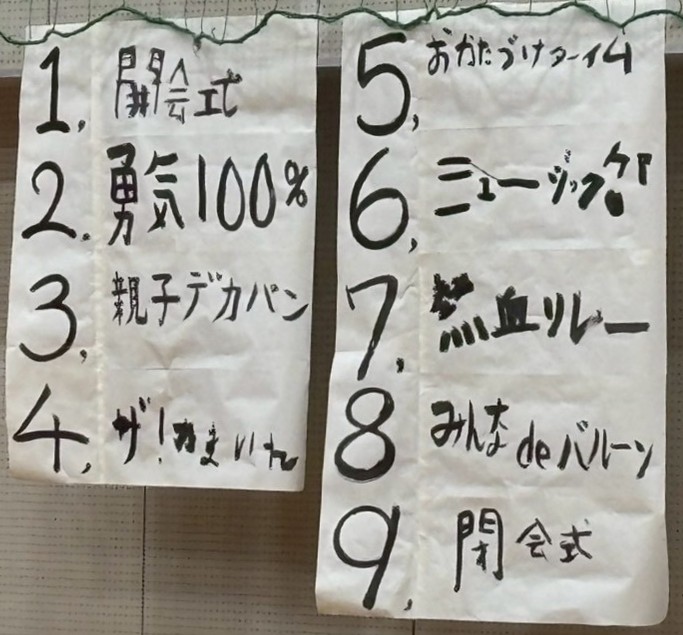 1. 開会式
2. 勇気100%
3. 親子デカパン
4. ザ!たまいれ
5. おかたづけターイム
6. ミュージック!
7. 熱血リレー
8. みんなdeバルーン
9. 閉会式